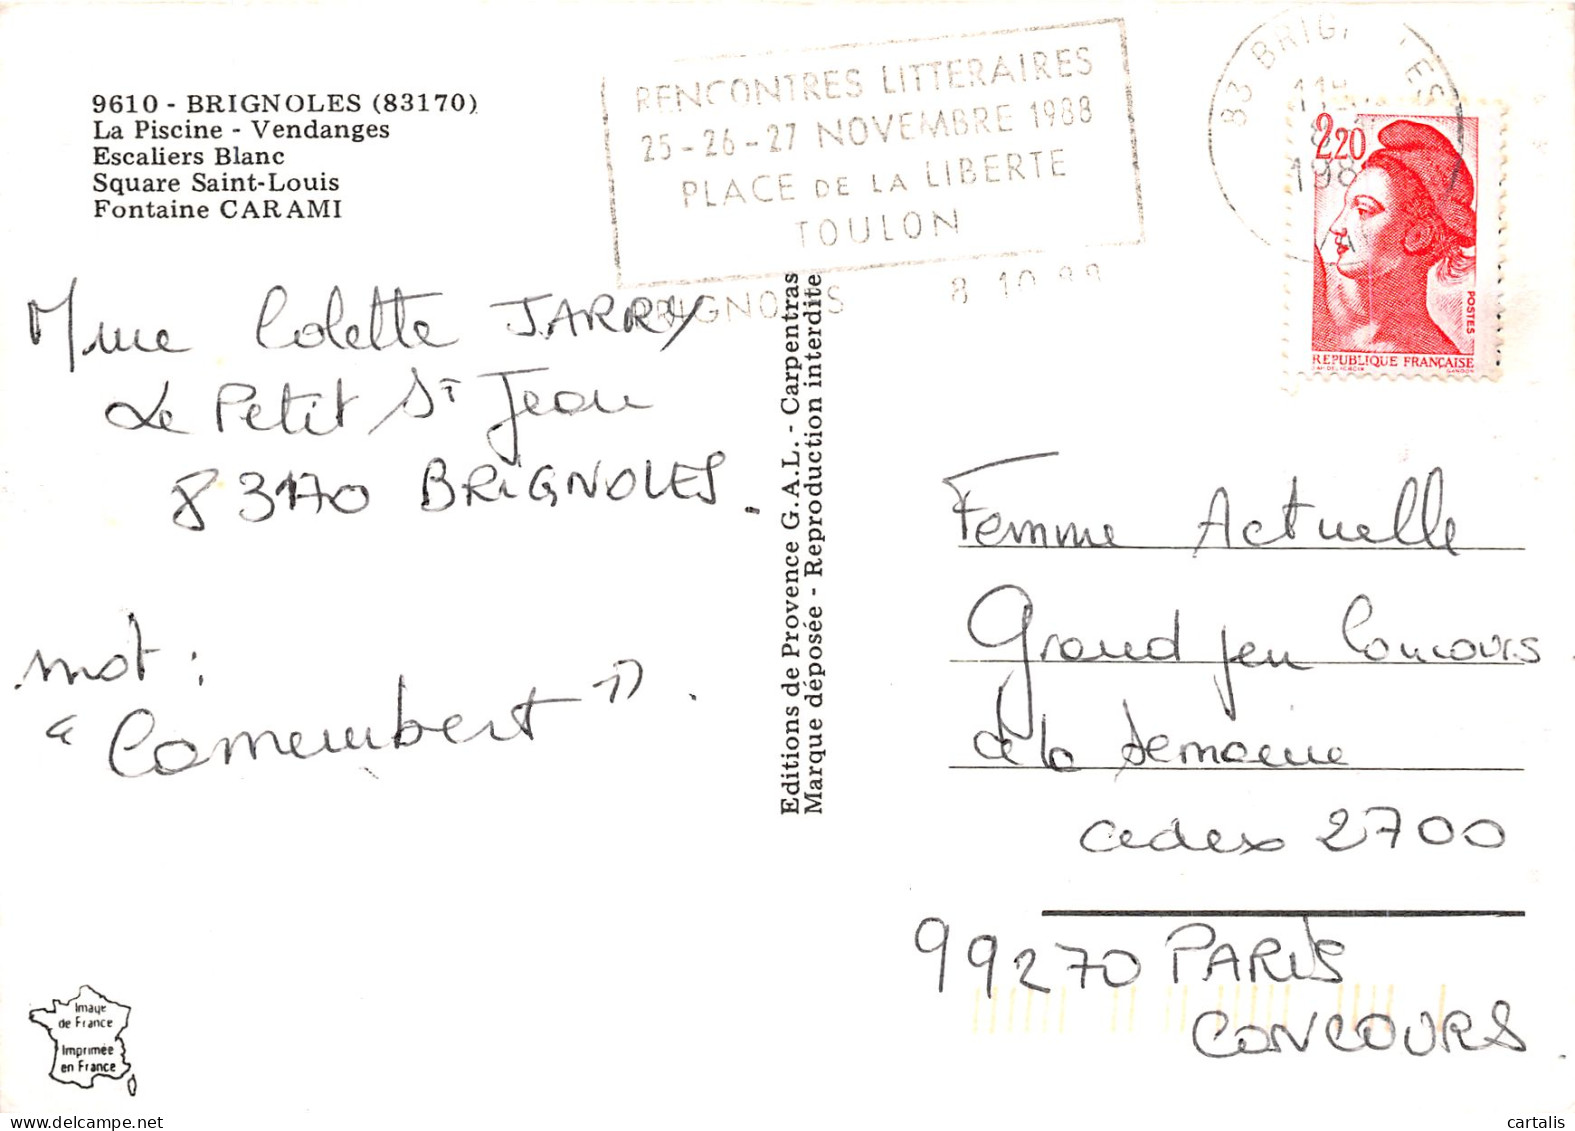 9610 - BRIGNOLES (83170)
La Piscine - Vendanges
Escaliers Blanc
Square Saint-Louis
Fontaine CARAMI
RENCONTRES LITTERAIRES
25-26-27 NOVEMBRE 1988
PLACE DE LA LIBERTE
TOULON
BRIGNOLES 8 10 88
83 BRIGNOLES
2,20
POSTES
REPUBLIQUE FRANÇAISE
GANDON
Mme Colette JARRY
Le Petit St Jean
83170 BRIGNOLES.
mot :
"Camembert".
Editions de Provence G.A.L. - Carpentras
Marque déposée - Reproduction interdite
Femme Actuelle
Grand jeu Concours
de la semaine
cedex 2700
99270 PARIS
CONCOURS.
Image
de France
Imprimée
en France
cartalis